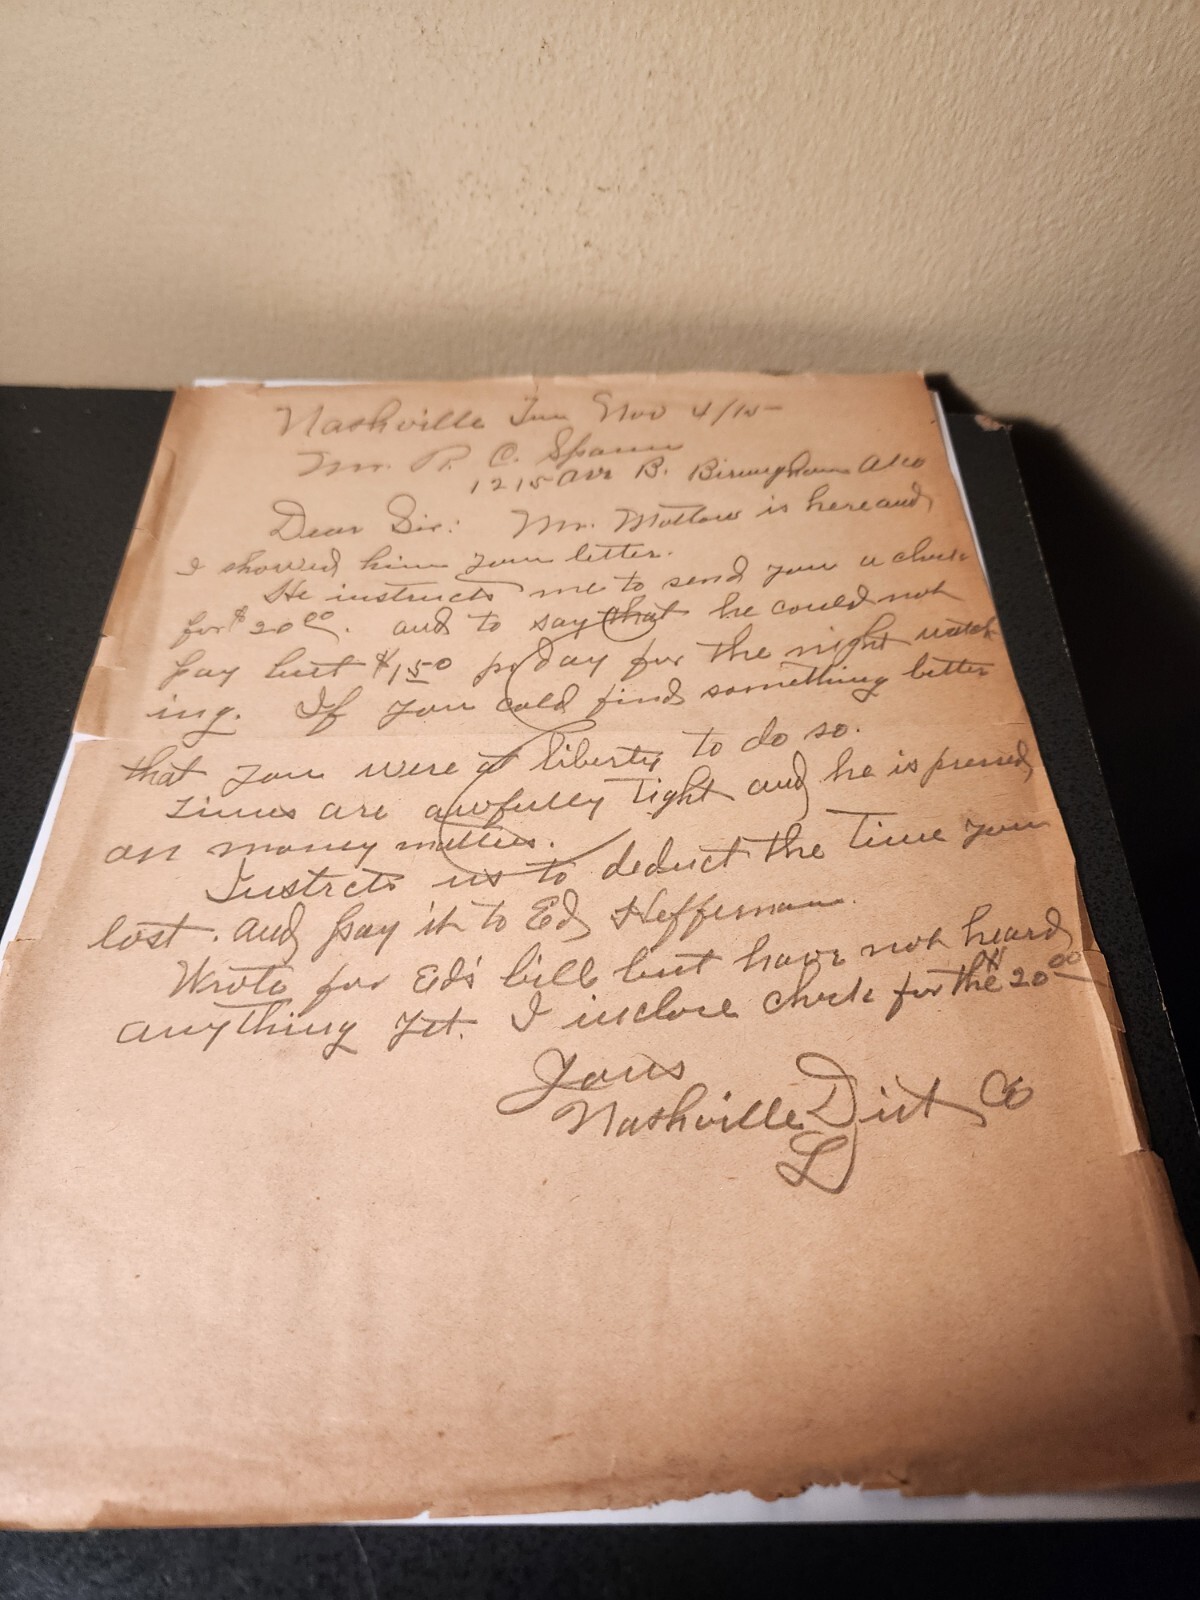 Nashville Tenn Nov 4/15
Mr. R. C. Spann
1215 Ave B. Birmingham Ala
Dear Sir: Mr. Motlow is here and
I showed him your letter.
He instructs me to send you a check
for $20 00. and to say that he could not
pay but $1.50 pr day for the night watch
ing. If you cold find something better
that you were at liberty to do so.
Times are awfully tight and he is pressed
on money matters.
Instrcts us to deduct the time you
lost. and pay it to Ed Heffernan.
Wrote for Ed's bill but have not heard
anything yet. I inclose check for the $20 00
Yours
Nashville Dist Co
L